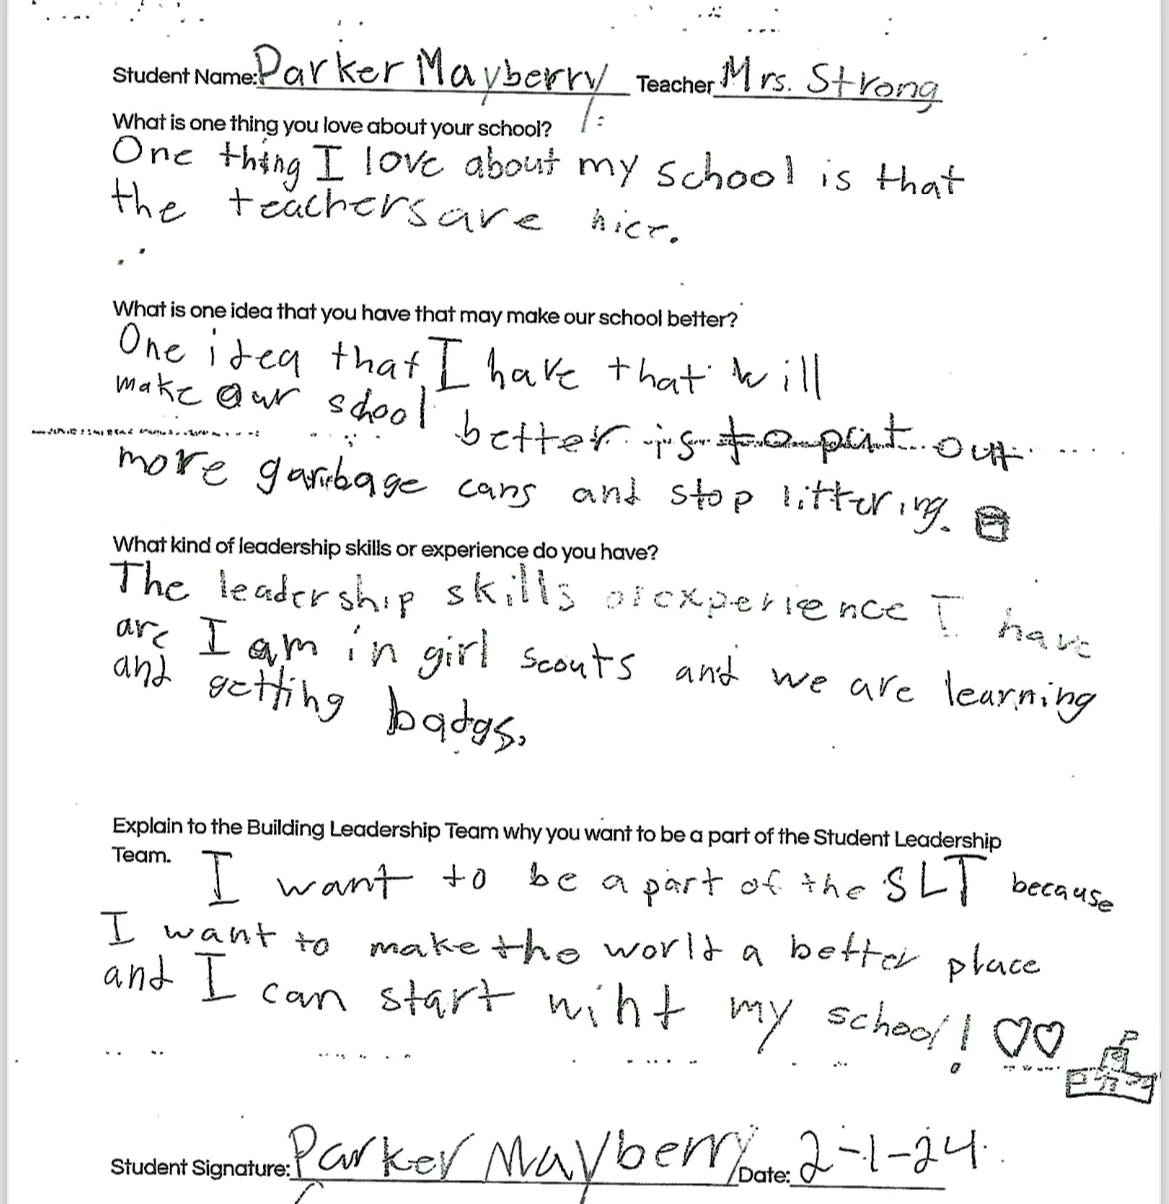 Student Name: Parker Mayberry Teacher Mrs. Strong
What is one thing you love about your school?
One thing I love about my school is that
the teachers are nice.
What is one idea that you have that may make our school better?
One idea that I have that will
make our school better is to put out
more garbage cans and stop littering.
What kind of leadership skills or experience do you have?
The leadership skills or experience I have
are I am in girl scouts and we are learning
and getting badgs.
Explain to the Building Leadership Team why you want to be a part of the Student Leadership
Team. I want to be a part of the SLT because
I want to make the world a better place
and I can start wiht my school!
Student Signature: Parker Mayberry Date: 2-1-24